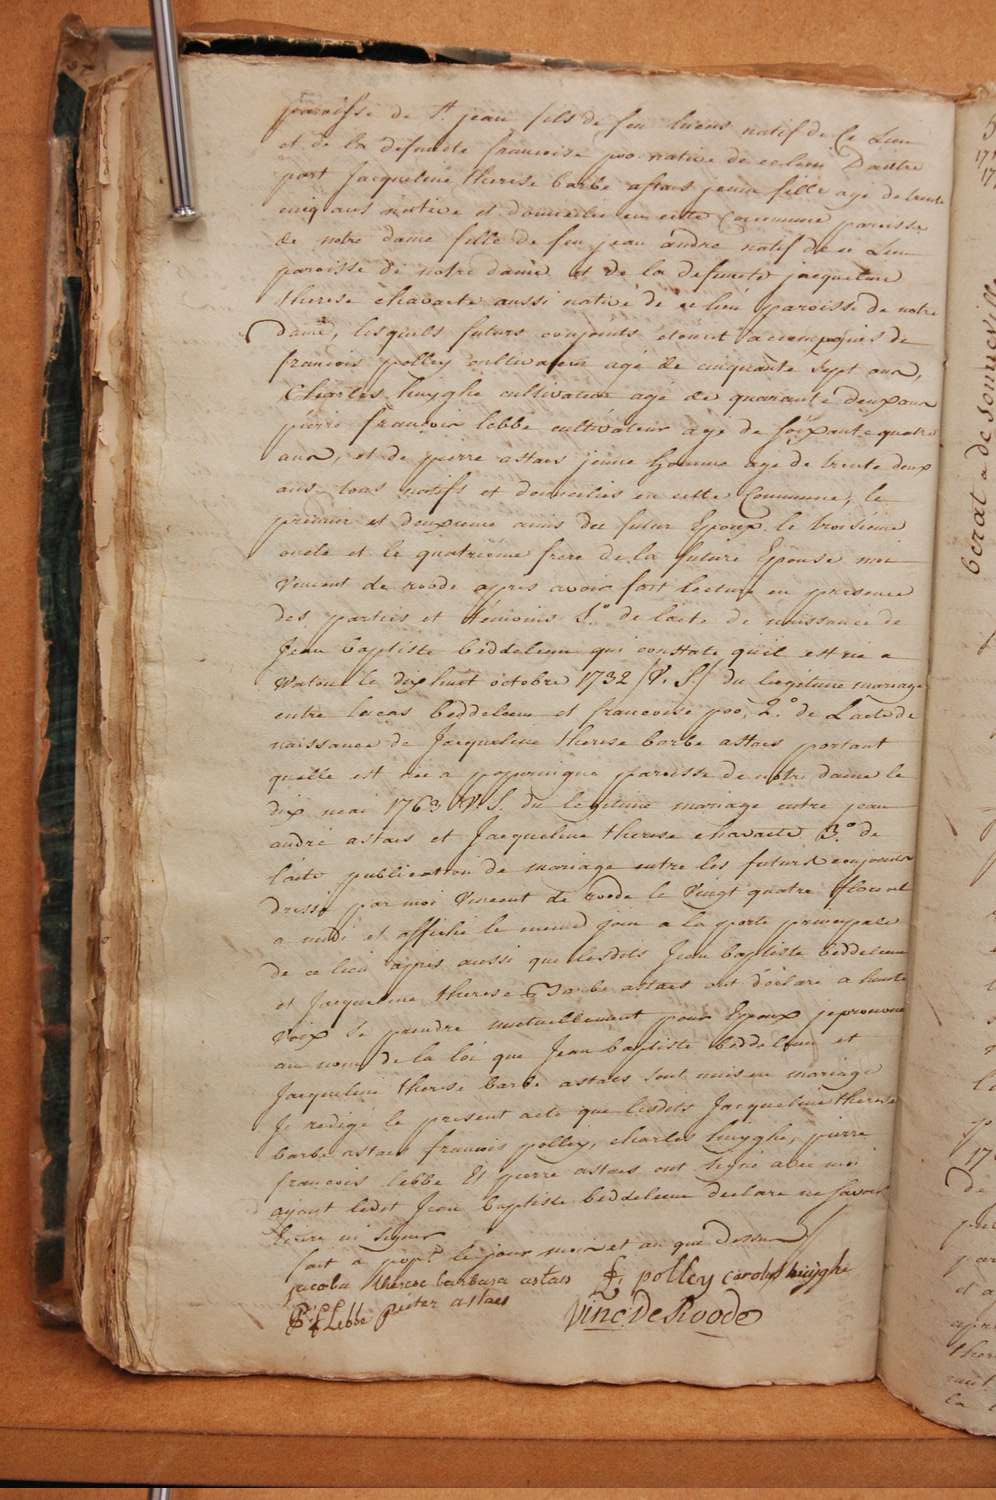 paroisse de St. jean fils de feu lucas natif de Ce Lieu
et de la defuncte francoise poo native de ce lieu D'autre
part Jacqueline therese barbe astaes jeune fille agé de trente
cinq ans native et domicilie en cette Commune paroisse
de notre dame fille de feu jean andre natif de ce Lieu
paroisse de notre dame et de la defuncte jacqueline
therese chavaete aussi native de ce lieu paroisse de notre
dame, lesquels futurs conjoints etoient accompagnés de
francois polley cultivateur agé de cinquante sept ans,
Charles huyghe cultivateur agé de quarante deux ans
pierre francois lebbe cultivateur age de soixante quatre
ans, et de pierre astaes jeune homme age de trente deux
ans tous natifs et domicilies en cette Commune, le
premier et deuxieme amis du futur Epoux le troisieme
oncle et le quatrieme frere de la future Epouse moi
Vincent de roode apres avoir fait lecture en presence
des parties et temoins 1.° de l'acte de naissance de
Jean baptiste beddeleem qui constate qu'il est né a
Watou le dix huit octobre 1732 (V. S.) du legitime mariage
entre lucas beddeleem et francoise poo, 2.° de L'acte de
naissance de Jacqueline therese barbe astaes portant
quelle est née a poperingue paroisse de notre dame le
dix mai 1763 V. S. du legitime mariage entre jean
andré astaes et Jacqueline therese chavaete 3.° de
l'acte publication de mariage entre les futurs conjoints
dressé par moi Vincent de roode le Vingt quatre floreal
a midi et affiché le meme jour a la porte principale
de ce lieu apres aussi que lesdits Jean baptiste beddeleem
et Jacqueline therese Barbe astaes ont déclaré a haute
Voix se prendre mutuellement pour Epoux je prononce
au nom de la loi que Jean baptiste beddeleem et
Jacqueline therese barbe astaes sont unis en mariage
Je redigé le present acte que lesdits Jacqueline therese
barbe astaes francois polley, charles huyghe, pierre
francois lebbe Et pierre astaes ont signé avec moi
ayant ledit Jean baptiste beddeleem declare ne savoir
Ecrire ni signer
fait a popr. le jour mois et an que Dessus
jacoba therese barbara astaes F. polley carolus huyghe
P: f Lebbe Pieter astaes
Vinc. De Roode